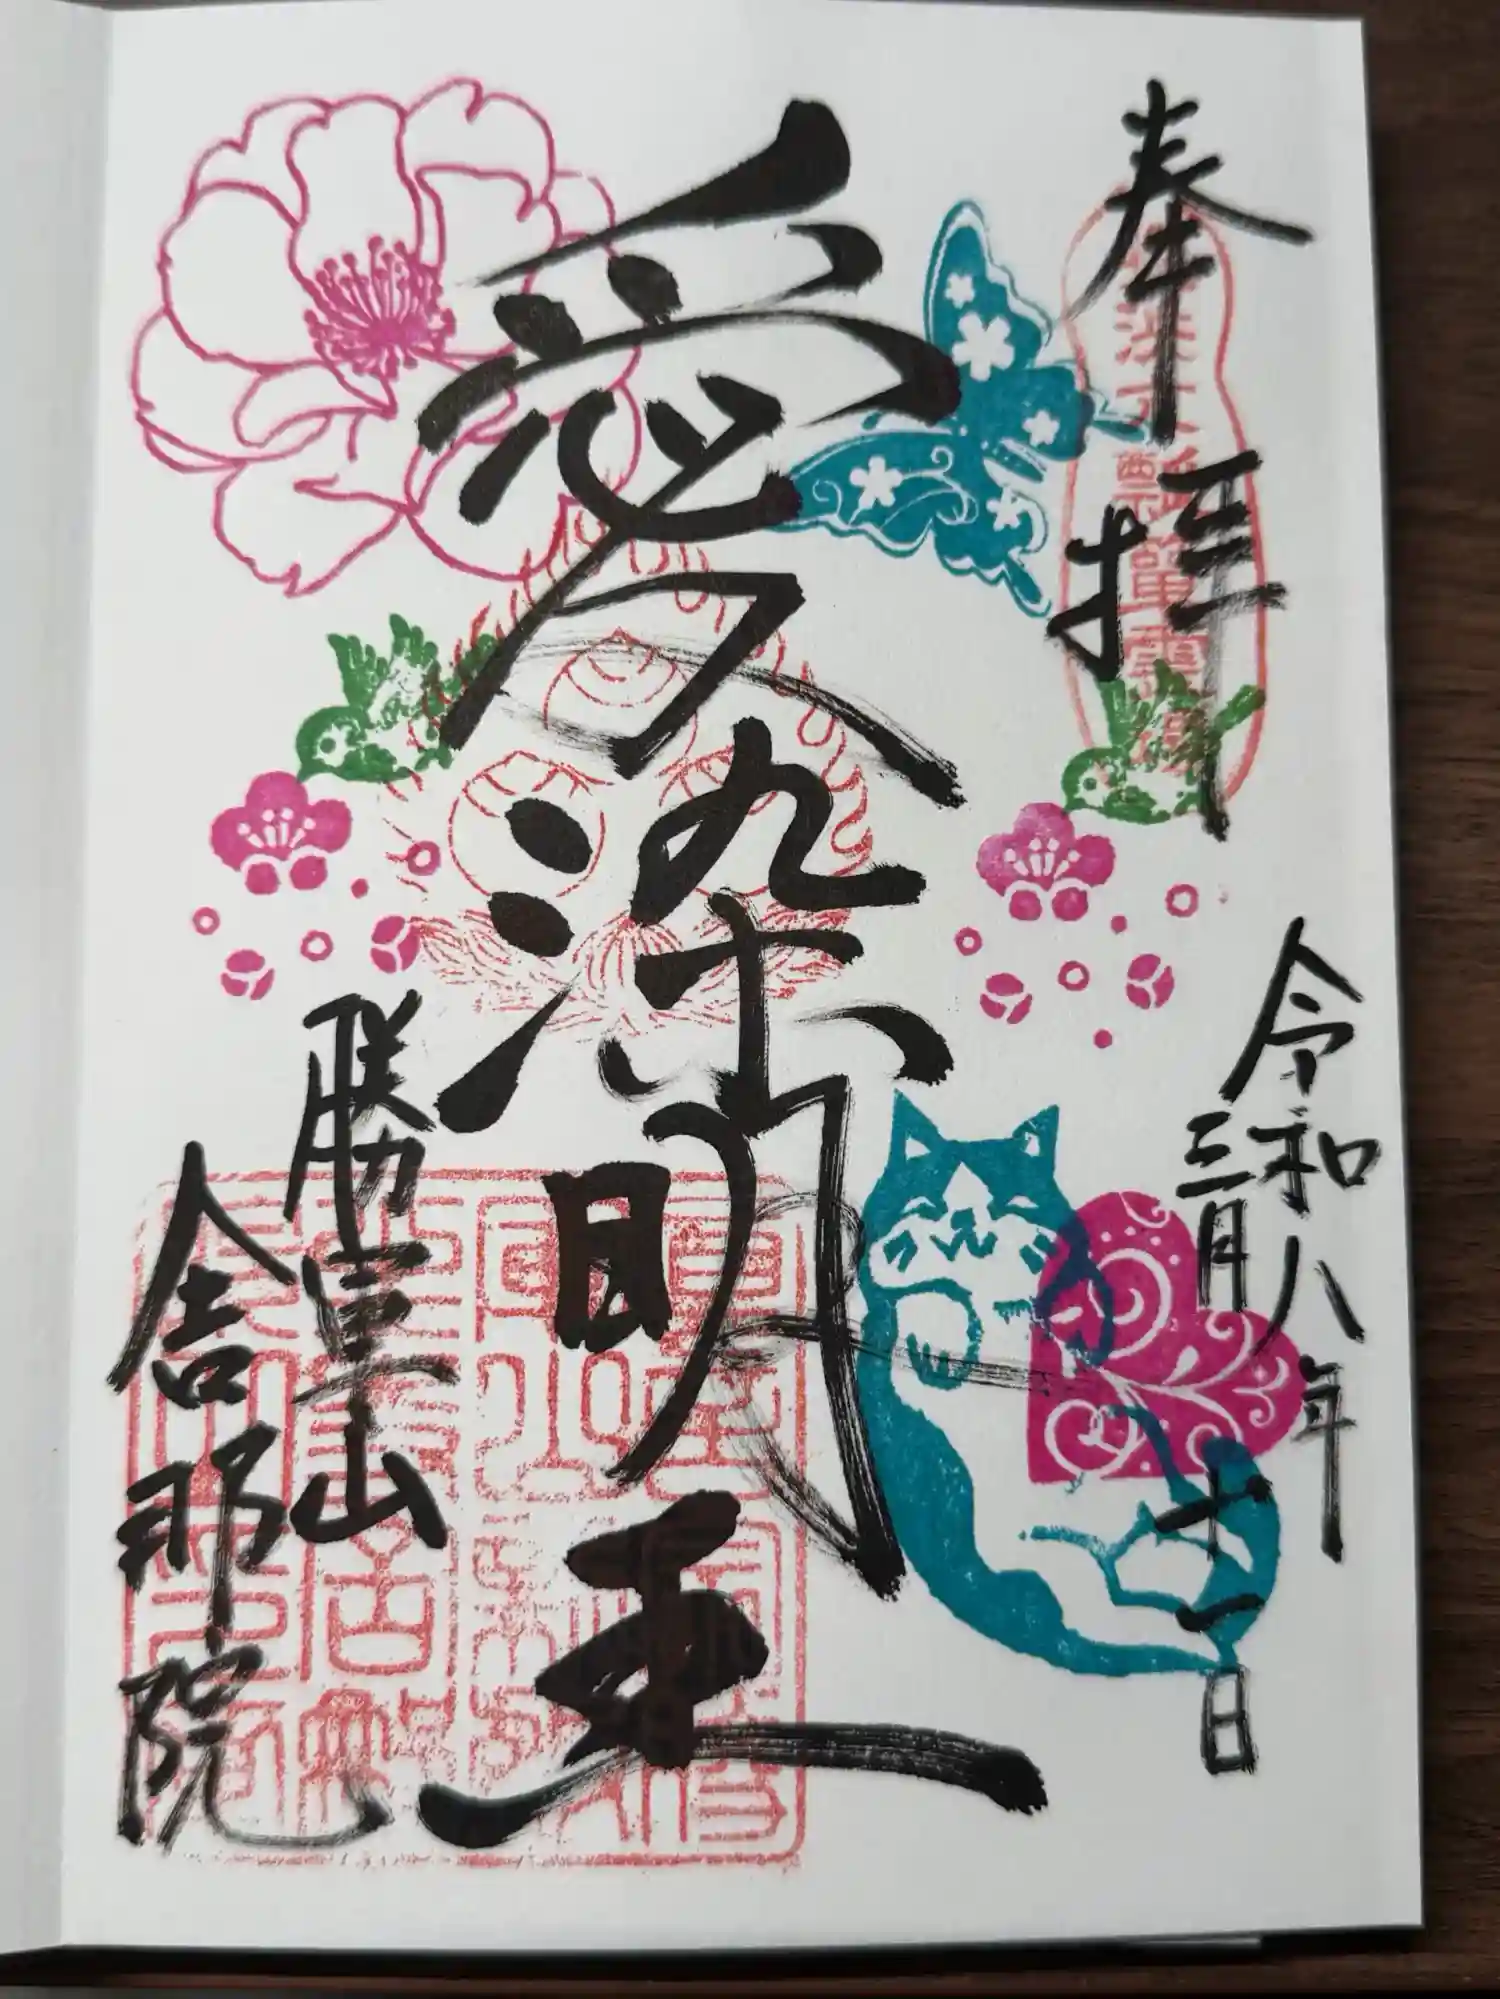 奉拝
令和八年
三月十一日
愛染明王
勝軍山
舎那院